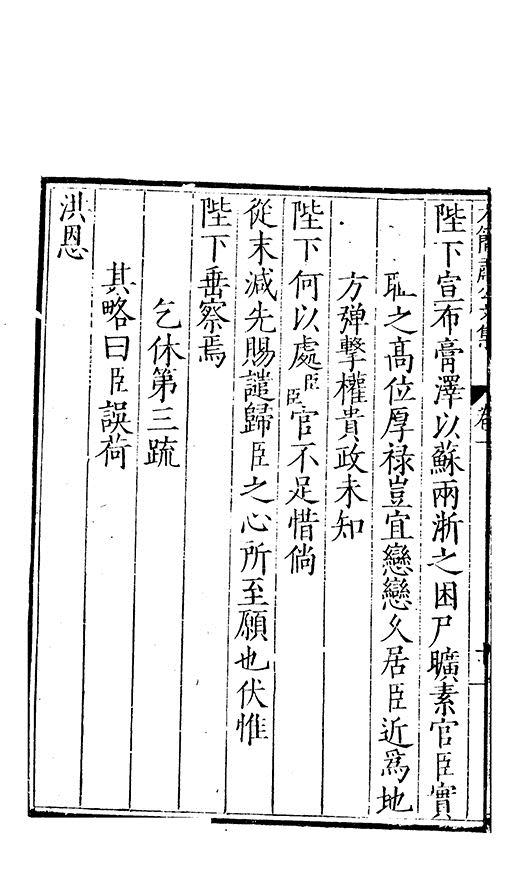 簡肅公文集 卷一
陛下宣布膏澤以蘇兩浙之困尸曠素官臣實
恥之高位厚禄豈宜戀戀久居臣近爲地
方弹擊權貴政未知
陛下何以處臣臣官不足惜倘
從末減先賜譴歸臣之心所至願也伏惟
陛下垂察焉
乞休第三疏
其略曰臣誤荷
洪恩